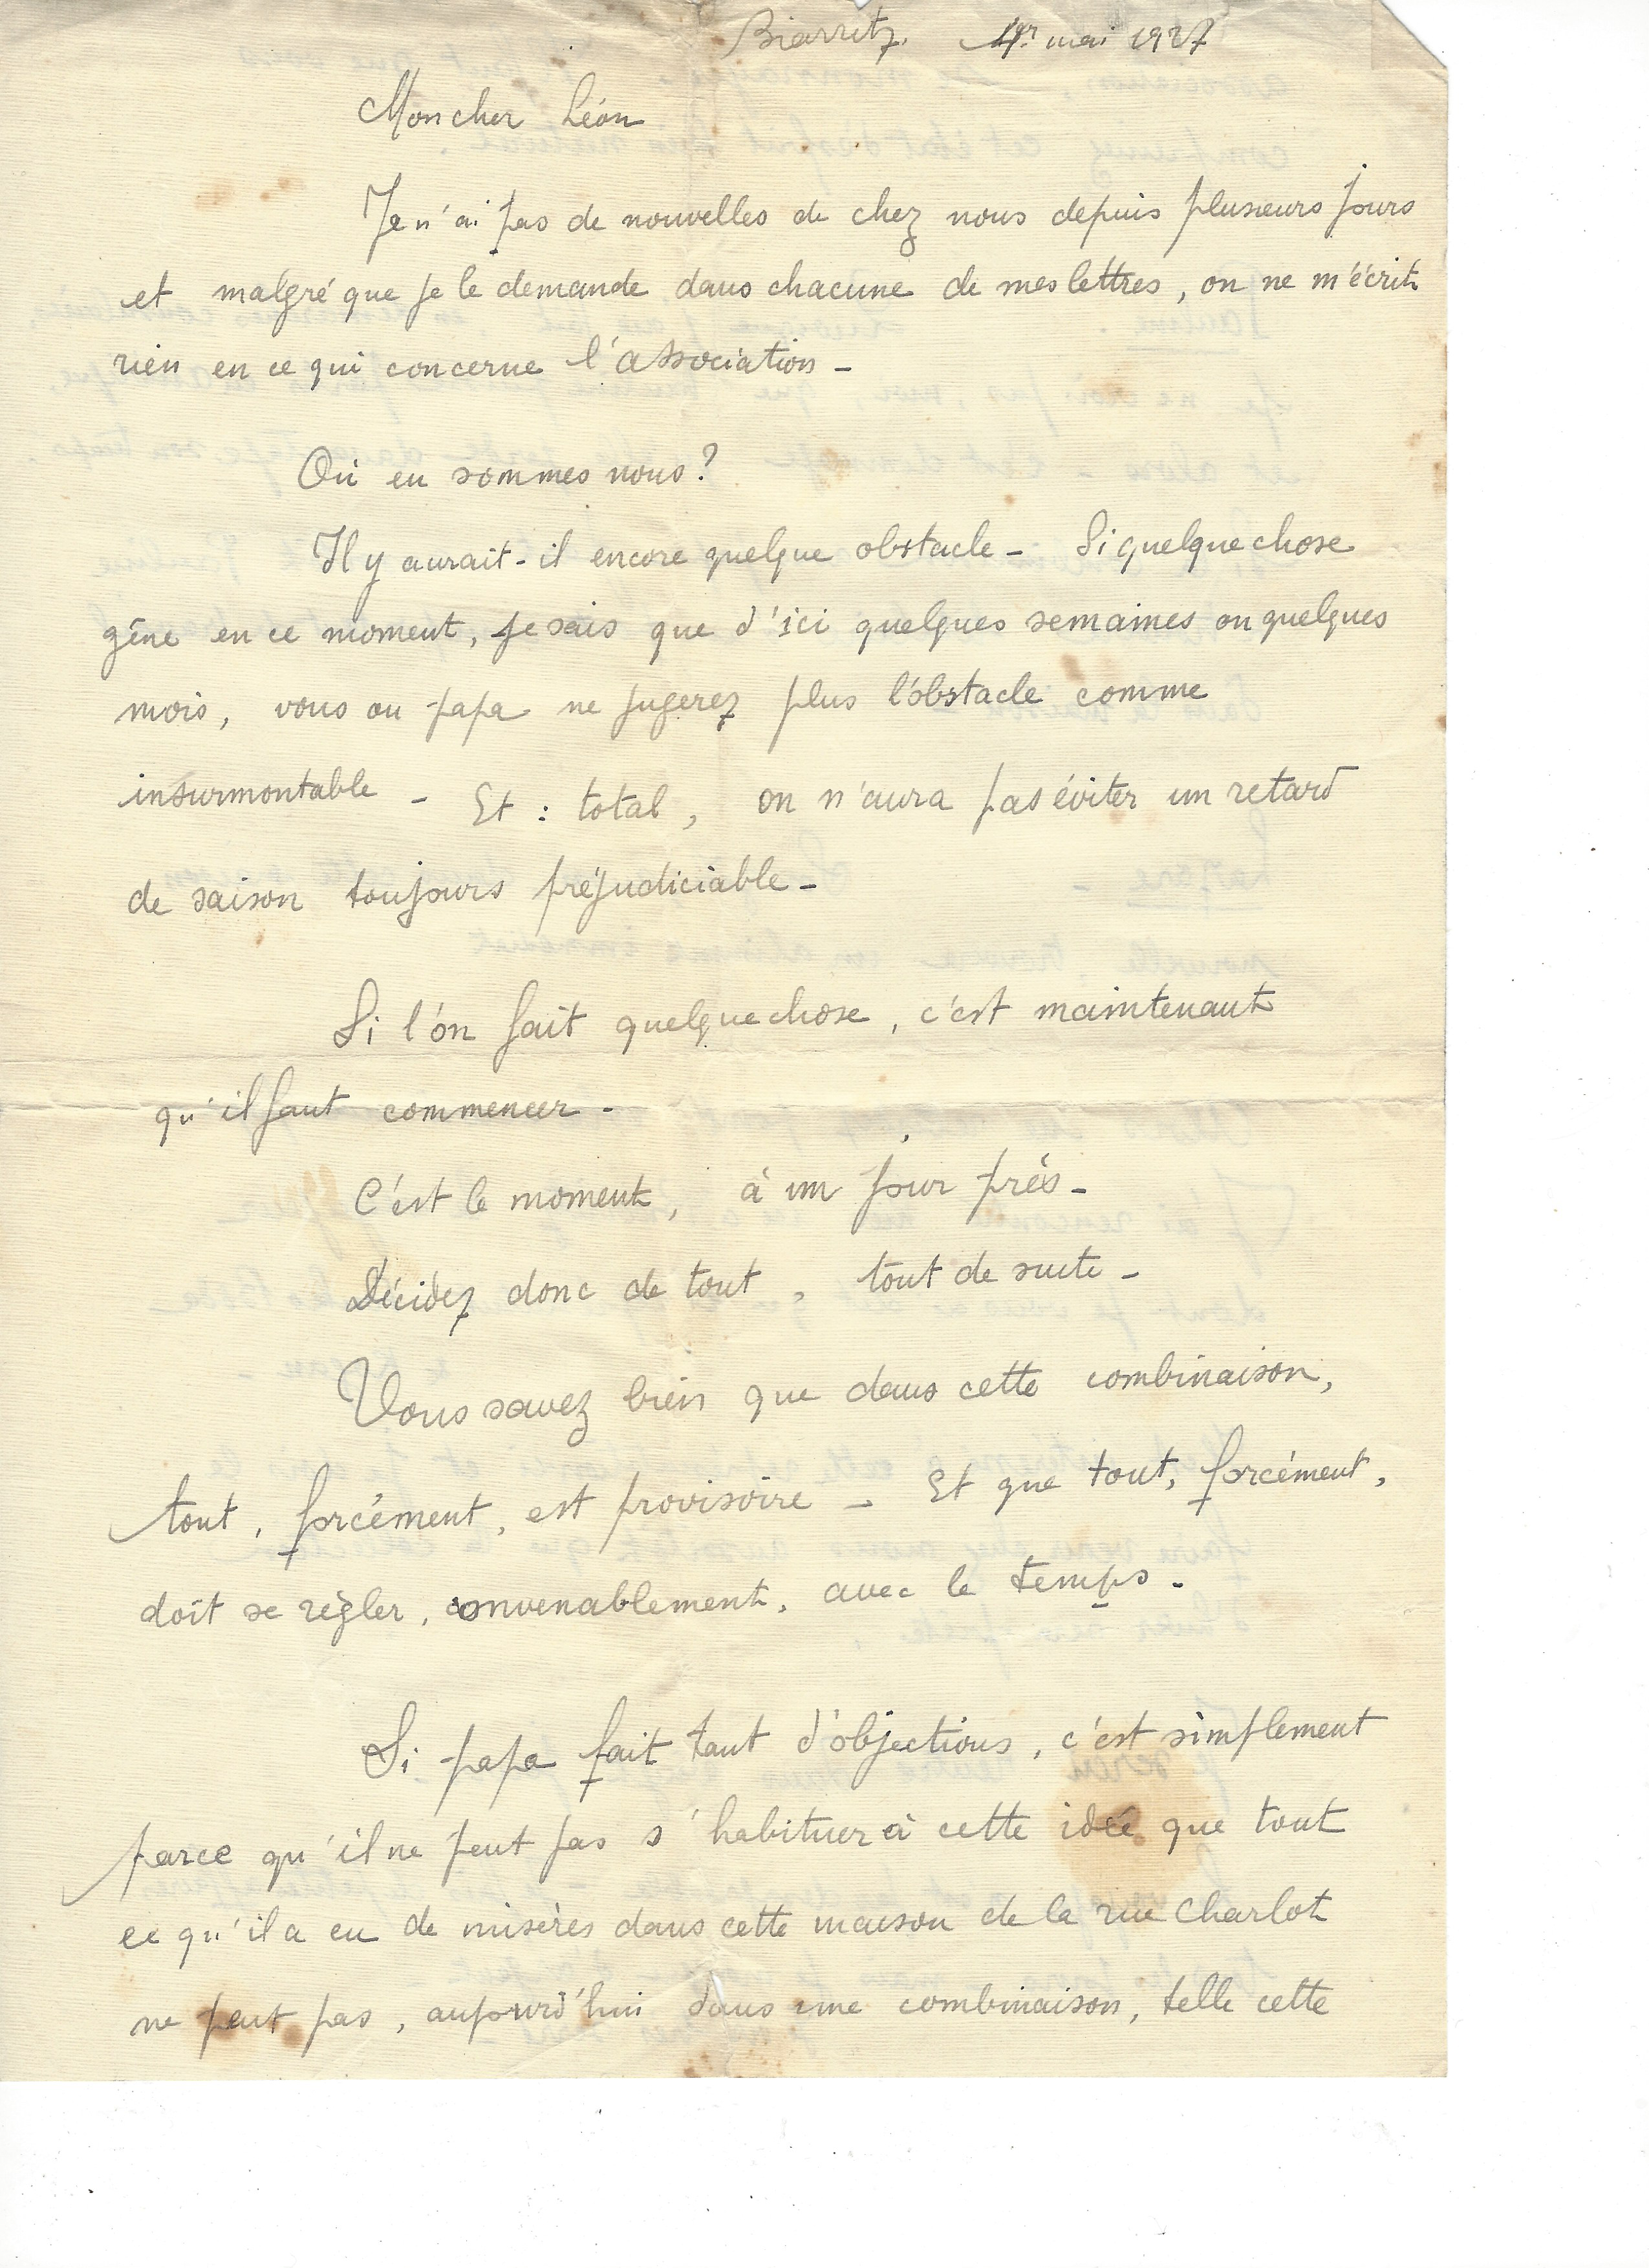 Biarritz. 1er mai 1927
Mon cher Léon
Je n'ai pas de nouvelles de chez nous depuis plusieurs jours
et malgré que je le demande dans chacune de mes lettres, on ne m'écrit
rien en ce qui concerne l'association -
Où en sommes nous?
Il y aurait-il encore quelque obstacle - Si quelque chose
gêne en ce moment, je sais que d'ici quelques semaines ou quelques
mois, vous ou papa ne jugerez plus l'obstacle comme
insurmontable - Et : total, on n'aura pas éviter un retard
de saison toujours préjudiciable -
Si l'on fait quelque chose, c'est maintenant
qu'il faut commencer -
C'est le moment, à un jour près -
Décidez donc de tout, tout de suite -
Vous savez bien que dans cette combinaison,
tout, forcément, est provisoire - Et que tout, forcément,
doit se régler, convenablement, avec le temps -
Si papa fait tant d'objections, c'est simplement
parce qu'il ne peut pas s'habituer à cette idée que tout
ce qu'il a eu de misères dans cette maison de la rue Charlot
ne peut pas, aujourd'hui dans une combinaison, telle cette